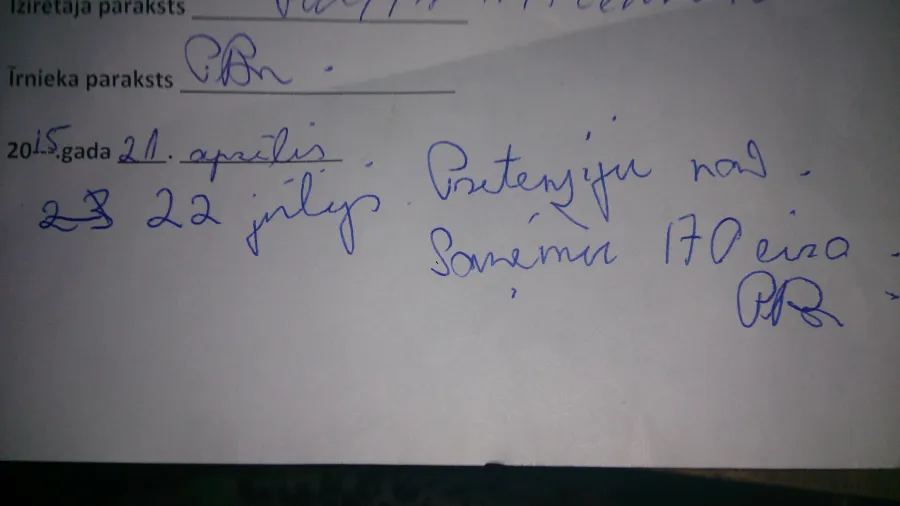 Izīrētāja paraksts
Īrnieka paraksts
2015.gada 21. aprīlis.
23 22 jūlijs. Pretenziju nav.
Saņēmu 170 eiro